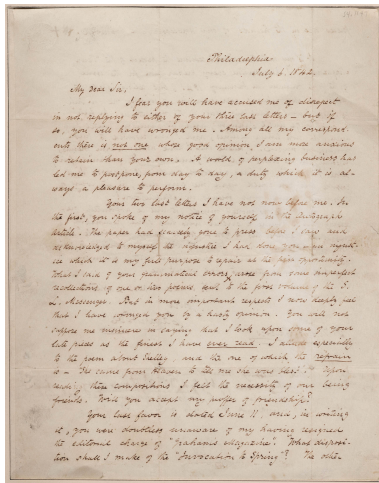 Philadelphia
July 6. 1842.
My Dear Sir,
I fear you will have accused me of disrespect
in not replying to either of your three last letters — but if
so, you will have wronged me. Among all my correspond
ents there is not one whose good opinion I am more anxious
to retain than your own. A world of perplexing business has
led me to postpone, from day to day, a duty which it is al-
ways a pleasure to perform.
Your two last letters I have not now before me. In
the first, you spoke of my notice of yourself in the Autograph
article. The paper had scarcely gone to press before I saw and
acknowledged to myself the injustice I had done you — an injust-
ice which it is my firm purpose to repair at the first opportunity.
What I said of your grammatical errors arose from some imperfect
recollections of one or two poems sent to the first volume of the S.
L. Messenger. But in more important respects I now deeply feel
that I have wronged you by a hasty opinion. You will not
suppose me insincere in saying that I look upon some of your
late pieces as the finest I have ever read. I allude especially
to the poem about Shelley, and the one of which the refrain
is — "She came from Heaven to tell me she was blest." Upon
reading these compositions I felt the necessity of our being
friends. Will you accept my proffer of friendship?
Your last favor is dated June 11. and, in writing
it, you were doubtless unaware of my having resigned
the editorial charge of "Graham's Magazine". What disposi-
tion shall I make of the "Invocation to Spring"? The other